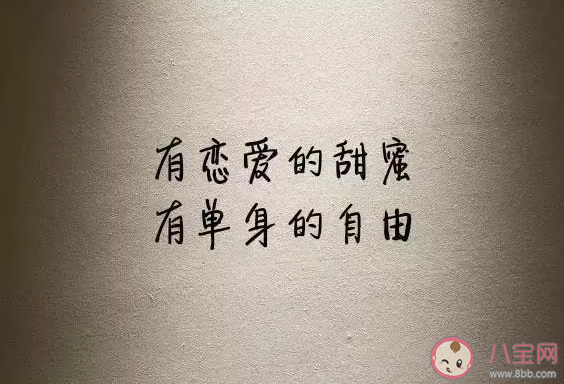 有恋爱的甜蜜
有单身的自由
八宝网
www.8bb.com